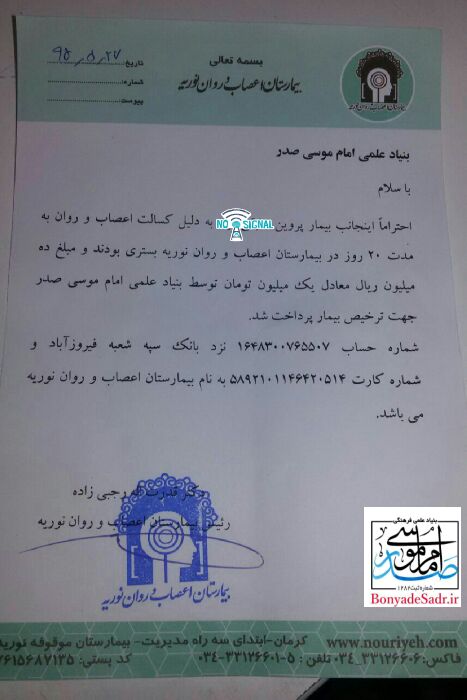 بسمه تعالی
بیمارستان اعصاب و روان نوریه
تاریخ: ۹۵,۵,۲۷
شماره:
پیوست:
بیمارستان اعصاب و روان نوریه
بنیاد علمی امام موسی صدر
با سلام
احتراماً اینجانب بیمار پروین NO SIGNAL به دلیل کسالت اعصاب و روان به
مدت ۲۰ روز در بیمارستان اعصاب و روان نوریه بستری بودند و مبلغ ده
میلیون ریال معادل یک میلیون تومان توسط بنیاد علمی امام موسی صدر
جهت ترخیص بیمار پرداخت شد.
شماره حساب ۱۶۴۸۳۰۰۷۶۵۵۰۷ نزد بانک سپه شعبه فیروزآباد و
شماره کارت ۵۸۹۲۱۰۱۱۴۶۴۲۰۵۱۴ به نام بیمارستان اعصاب و روان نوریه
می باشد.
دکتر قدرت اله رجبی زاده
رئیس بیمارستان اعصاب و روان نوریه
بیمارستان اعصاب و روان نوریه
بنیاد علمی فرهنگی
امام موسی صدر
شماره ثبت ۱۲۸۶
BonyadeSadr.ir
www.nouriyeh.com کرمان-ابتدای سه راه مدیریت- بیمارستان موقوفه نوریه
فاکس: ۳۳۱۲۶۶۰۶_۰۳۴ تلفن: ۵-۳۳۱۲۶۶۰۱-۰۳۴ کد پستی: ۷۶۱۵۶۸۷۱۳۵